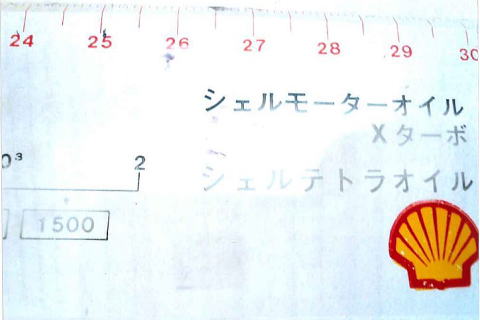 24 25 26 27 28 29 30
シェルモーターオイル
Xターボ
0³ 2
シェルテトラオイル
1500